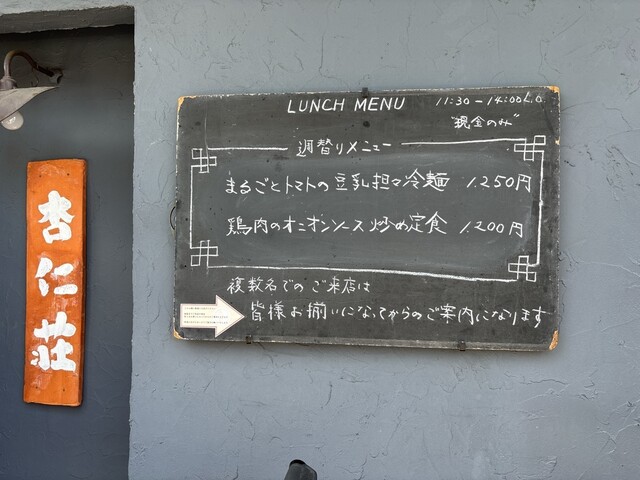 杏仁荘
LUNCH MENU 11:30-14:00L.O.
"現金のみ"
週替りメニュー
まるごとトマトの豆乳担々冷麺 1.250円
鶏肉のオニオンソース炒め定食 1.200円
複数名でのご来店は
皆様お揃いになってからのご案内になります